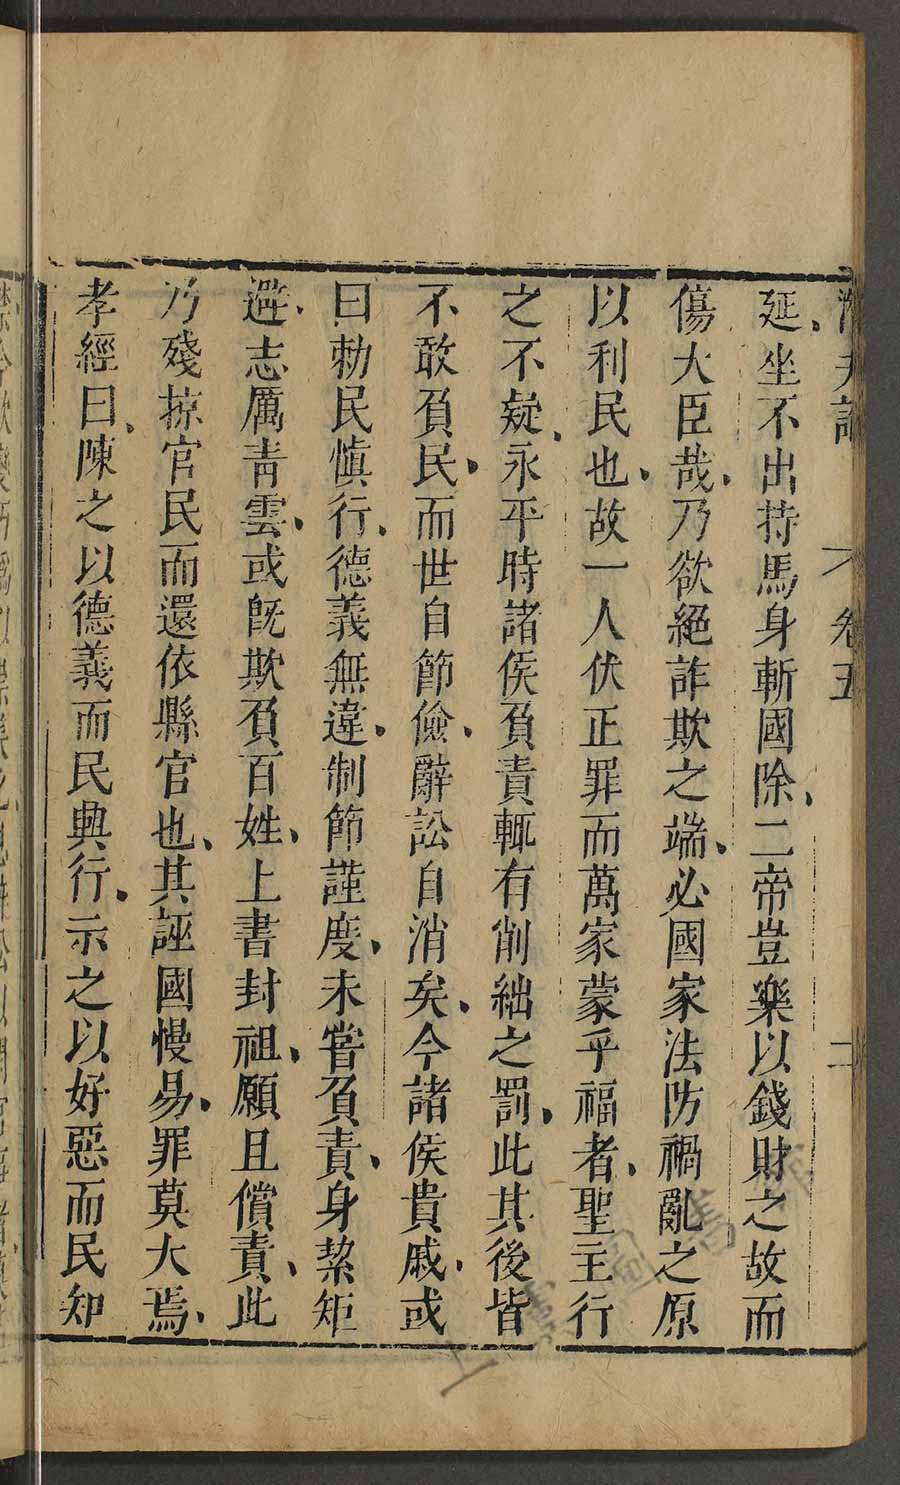 卷五 二
延坐不出持馬身斬國除二帝豈樂以錢財之故而
傷大臣哉乃欲絕詐欺之端必國家法防禍亂之原
以利民也故一人伏正罪而萬家蒙乎福者聖主行
之不疑永平時諸侯負責輒有削絀之罰此其後皆
不敢負民而世自節儉辭訟自消矣今諸侯貴戚或
曰勅民慎行德義無違制節謹度未嘗負責身絜矩
避志厲青雲或既欺負百姓上書封祖願且償責此
乃殘掠官民而還依縣官也其誣國慢易罪莫大焉
孝經曰陳之以德義而民興行示之以好惡而民知